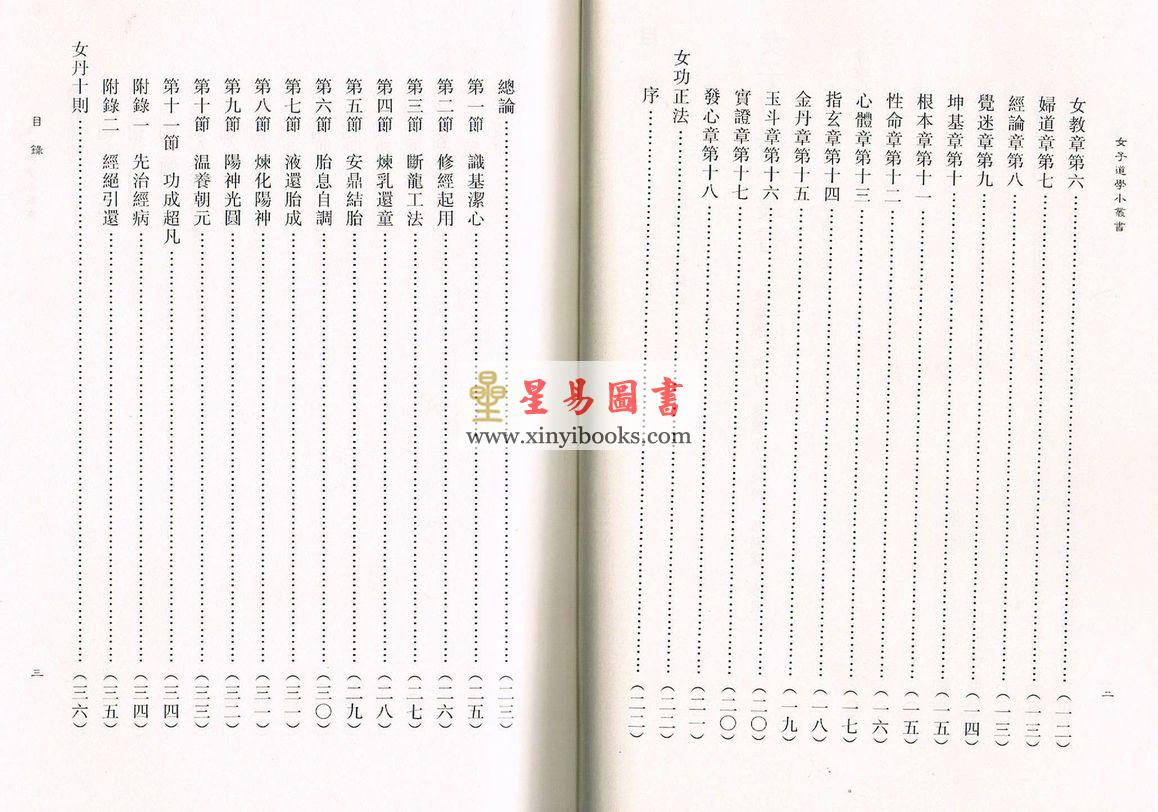 女子道學小叢書
二
女教章第六……(一二)
婦道章第七……(一三)
經論章第八……(一三)
覺迷章第九……(一四)
坤基章第十……(一五)
根本章第十一……(一五)
性命章第十二……(一六)
心體章第十三……(一七)
指玄章第十四……(一八)
金丹章第十五……(一九)
玉斗章第十六……(二〇)
實證章第十七……(二〇)
發心章第十八……(二一)
女功正法……(二二)
序……(二二)
總論……(二三)
第一節 識基潔心……(二五)
第二節 修經起用……(二六)
第三節 斷龍工法……(二七)
第四節 煉乳還童……(二八)
第五節 安鼎結胎……(二九)
第六節 胎息自調……(三〇)
第七節 液還胎成……(三一)
第八節 煉化陽神……(三一)
第九節 陽神光圓……(三二)
第十節 温養朝元……(三三)
第十一節 功成超凡……(三四)
附錄一 先治經病……(三四)
附錄二 經絕引還……(三五)
女丹十則……(三六)
目錄
三
星易圖書
www.xinyibooks.com